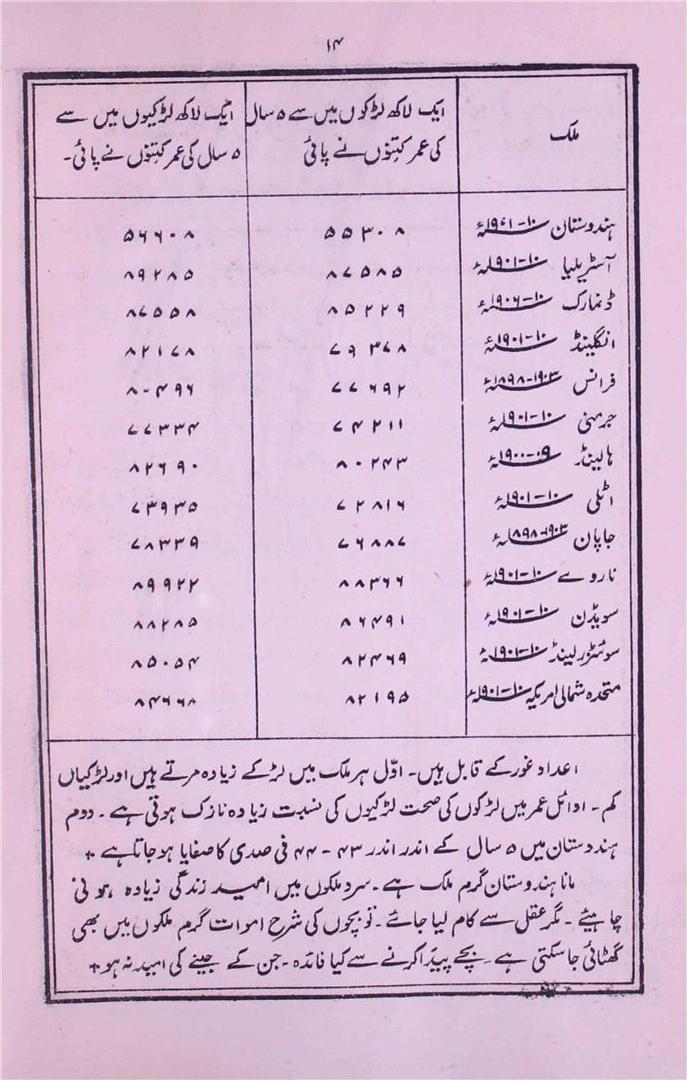 ۱۴
ملک | ایک لاکھ لڑکوں میں سے ۵ سال کی عمر کتنوں نے پائی | ایک لاکھ لڑکیوں میں سے ۵ سال کی عمر کتنوں نے پائی۔
ہندوستان ۱۰-۱۹۰۱ء | ۵۵۳۰۸ | ۵۶۶۰۸
آسٹریلیا ۱۰-۱۹۰۱ء | ۸۷۵۸۵ | ۸۹۲۸۵
ڈنمارک ۱۰-۱۹۰۶ء | ۸۵۲۲۹ | ۸۷۵۵۸
انگلینڈ ۱۰-۱۹۰۱ء | ۷۹۳۷۸ | ۸۲۱۷۸
فرانس ۱۹۰۳-۱۸۹۸ء | ۷۷۶۹۲ | ۸۰۴۹۶
جرمنی ۱۰-۱۹۰۱ء | ۷۴۲۱۱ | ۷۷۳۳۴
ہالینڈ ۰۹-۱۹۰۰ء | ۸۰۲۴۳ | ۸۲۶۹۰
اٹلی ۱۰-۱۹۰۱ء | ۷۲۸۱۶ | ۷۳۹۳۵
جاپان ۱۹۰۳-۱۸۹۸ء | ۷۶۸۸۷ | ۷۸۳۳۹
ناروے ۱۰-۱۹۰۱ء | ۸۸۳۶۶ | ۸۹۹۲۲
سویڈن ۱۰-۱۹۰۱ء | ۸۶۴۹۱ | ۸۸۲۸۵
سوئٹزرلینڈ ۱۰-۱۹۰۱ء | ۸۲۴۶۹ | ۸۵۰۵۴
متحدہ شمالی امریکہ ۱۰-۱۹۰۱ء | ۸۲۱۹۵ | ۸۴۶۶۸
اعداد غور کے قابل ہیں۔ اوّل ہر ملک میں لڑکے زیادہ مرتے ہیں اور لڑکیاں
کم۔ اوائل عمر میں لڑکوں کی صحت لڑکیوں کی نسبت زیادہ نازک ہوتی ہے۔ دوم
ہندوستان میں ۵ سال کے اندر اندر ۴۳ - ۴۴ فی صدی کا صفایا ہو جاتا ہے ٭
مانا ہندوستان گرم ملک ہے۔ سرد ملکوں میں امید زندگی زیادہ ہونی
چاہیئے۔ مگر عقل سے کام لیا جائے۔ تو بچوں کی شرح اموات گرم ملکوں میں بھی
گھٹائی جا سکتی ہے۔ بچے پیدا کرنے سے کیا فائدہ۔ جن کے جینے کی امید نہ ہو ٭